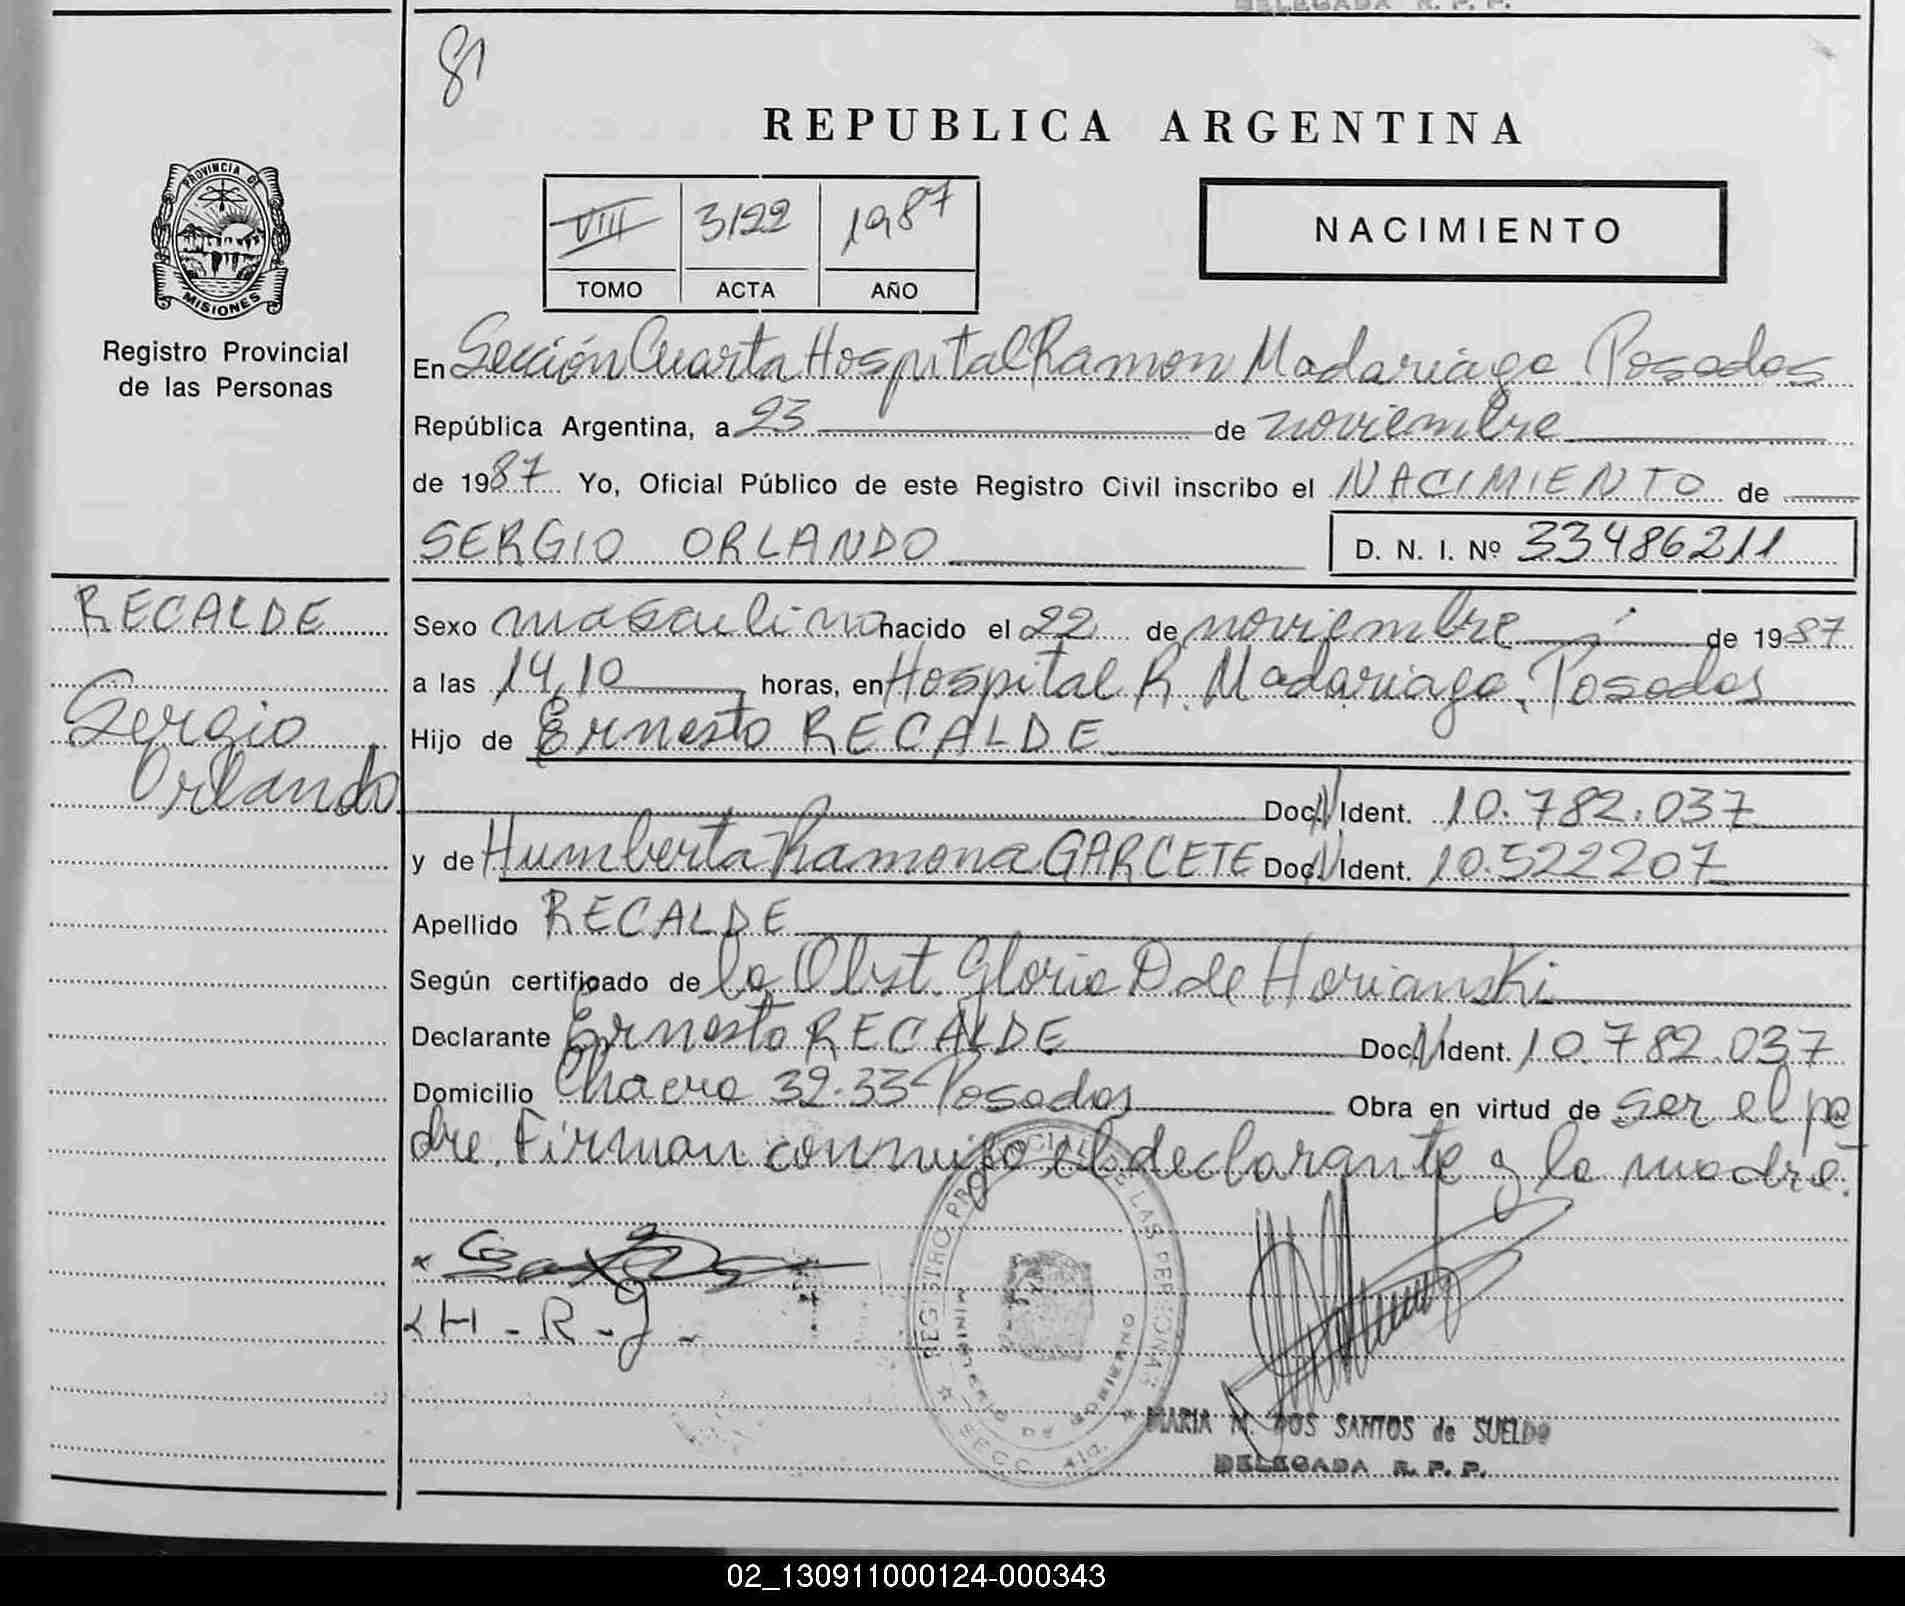 DELEGADA R. P. P.
81
REPUBLICA ARGENTINA
PROVINCIA DE
MISIONES
Registro Provincial
de las Personas
VIII 3122 1987
TOMO ACTA AÑO
NACIMIENTO
En Sección Cuarta Hospital Ramon Madariaga Posadas
República Argentina, a 23 de noviembre
de 1987 Yo, Oficial Público de este Registro Civil inscribo el NACIMIENTO de
SERGIO ORLANDO D. N. I. Nº 33486211
RECALDE
Sergio
Orlando
Sexo masculino nacido el 22 de noviembre de 1987
a las 14,10 horas, en Hospital R. Madariaga, Posadas
Hijo de Ernesto RECALDE
Doc. N Ident. 10.782.037
y de Humberta Ramona GARCETE Doc. N Ident. 10.522207
Apellido RECALDE
Según certificado de la Obst. Gloria D de Horianski
Declarante Ernesto RECALDE Doc. N Ident. 10.782.037
Domicilio Chacra 32-33 Posadas Obra en virtud de ser el pa
dre. Firman conmigo el declarante y la madre.
H-R-G.
REGISTRO PROVINCIAL DE LAS PERSONAS
MINISTERIO DE GOBIERNO
SECC. 4ta.
MARIA M. DOS SANTOS de SUELDO
DELEGADA R. P. P.
02_130911000124-000343